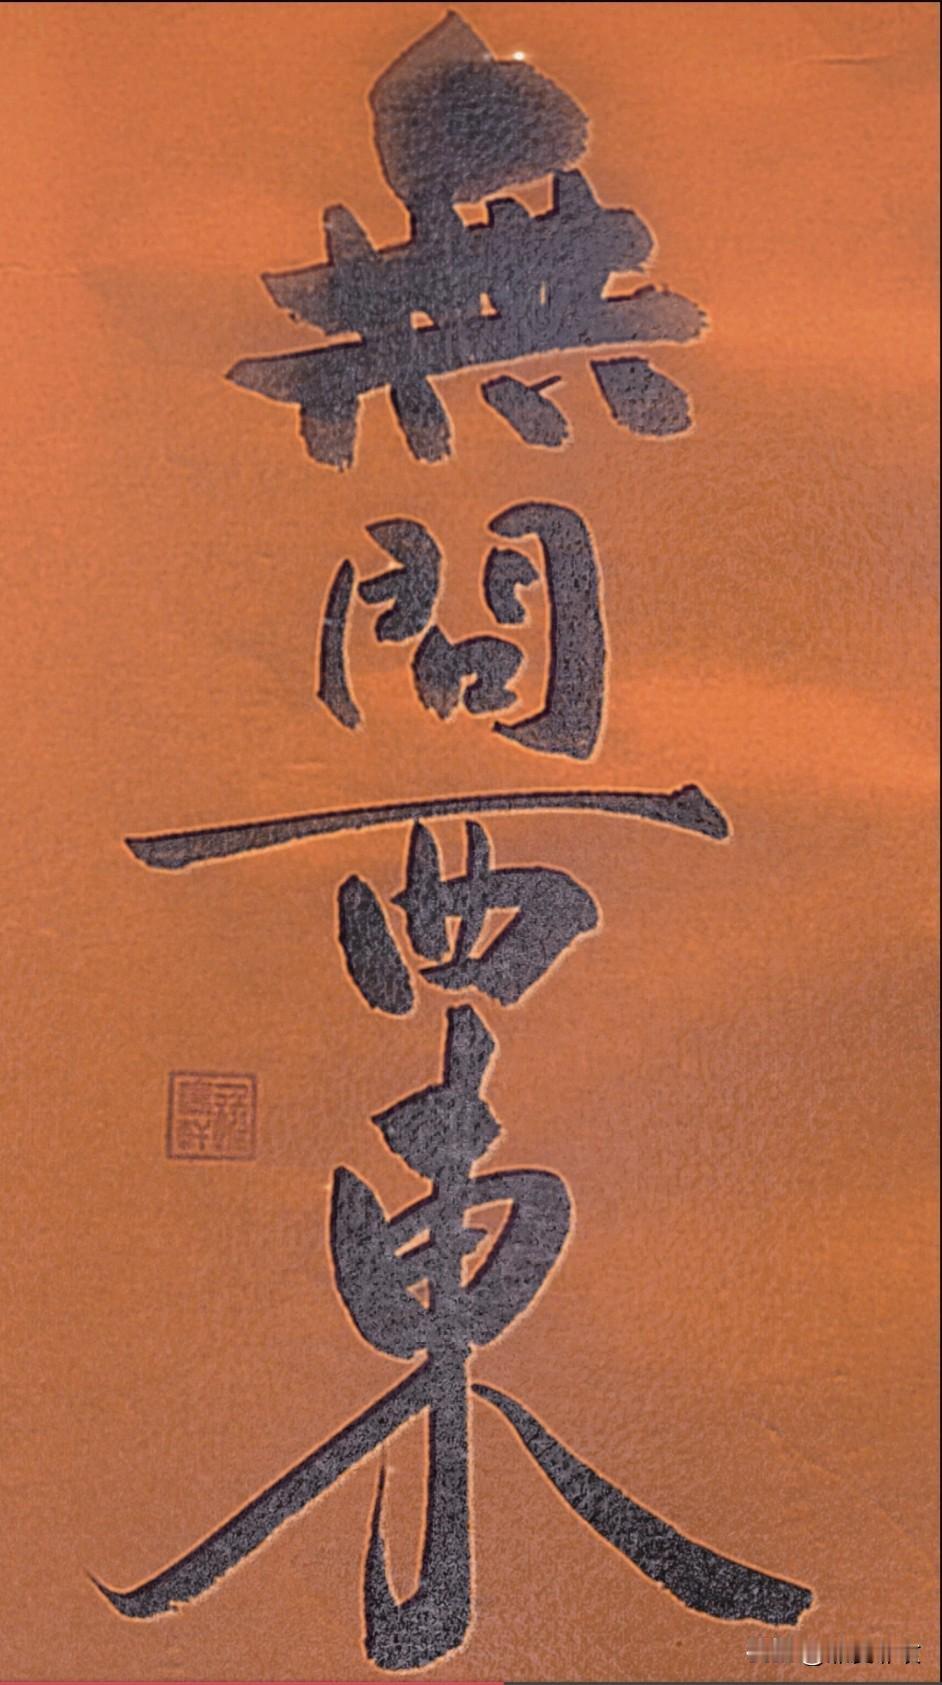 無問西東